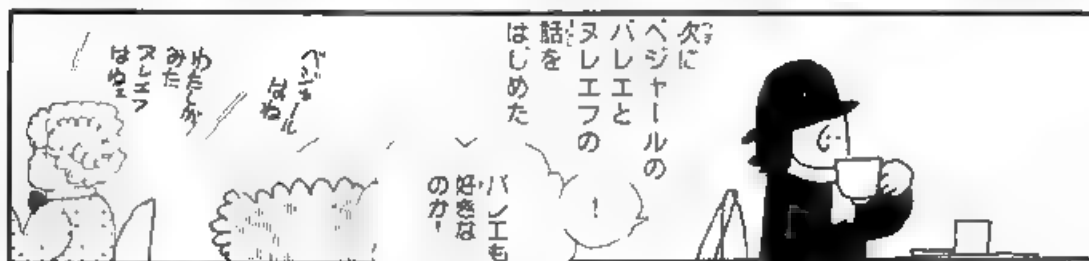 次に
ベジャールの
バレエと
ヌレエフの
話を
はじめた
！
バレエも
好きな
のか！
ベジャール
はね
わたしが
みた
ヌレエフ
はねェ